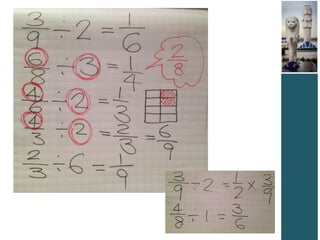 3/9 ÷ 2 = 1/6
6/8 ÷ 3 = 1/4 2/8
4/6 ÷ 2 = 1/3
4/3 ÷ 2 = 2/3 = 6/9
2/3 ÷ 6 = 1/9
3/9 ÷ 2 = 1/2 × 3/9
4/8 ÷ 1 = 3/6